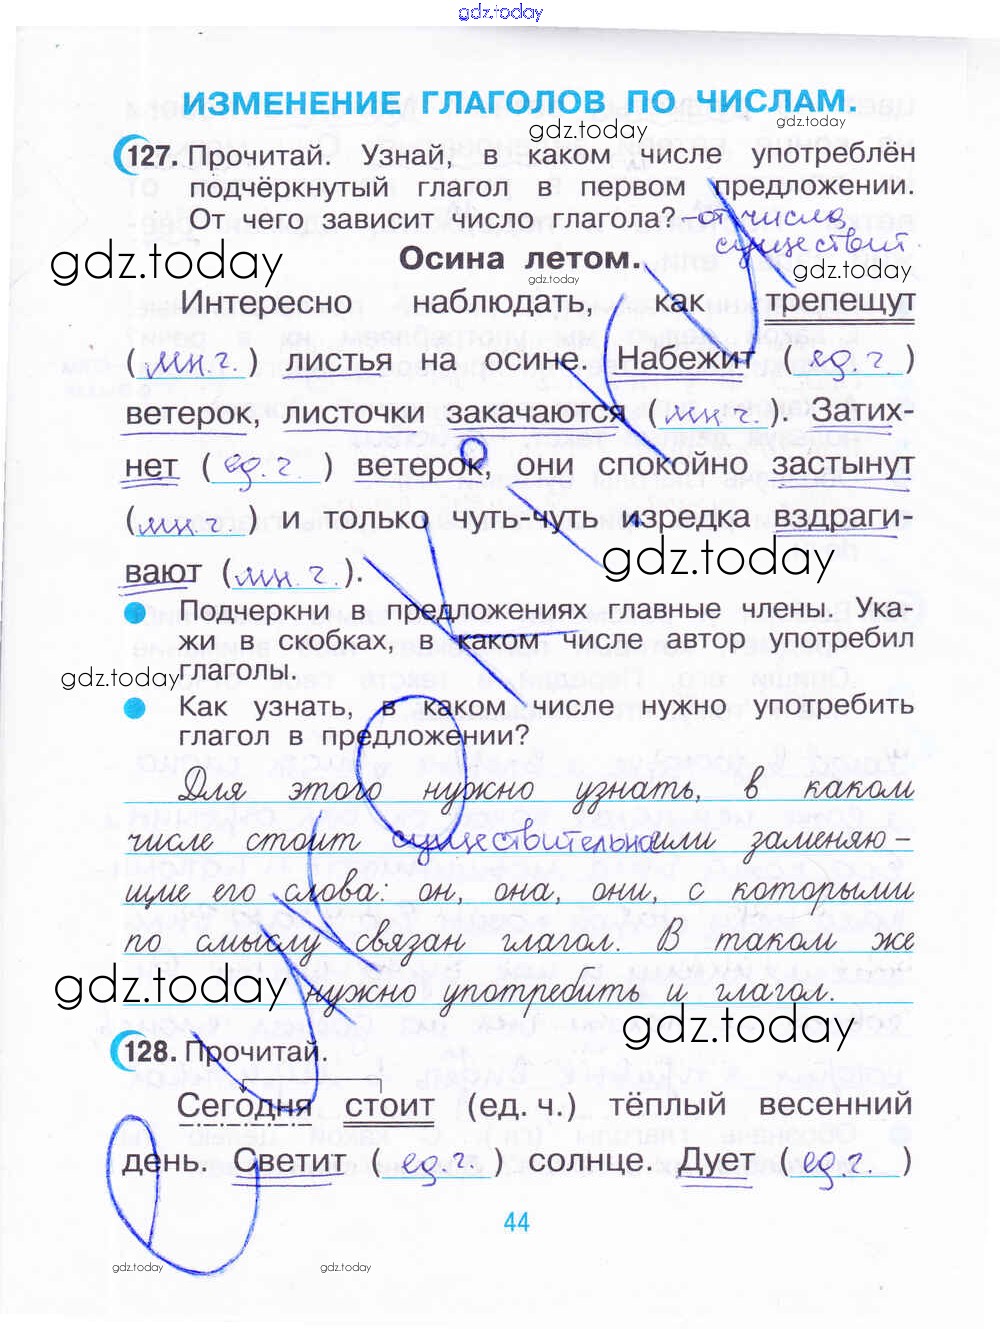 gdz.today
ИЗМЕНЕНИЕ ГЛАГОЛОВ ПО ЧИСЛАМ.
gdz.today
gdz.today
127. Прочитай. Узнай, в каком числе употреблён
подчёркнутый глагол в первом предложении.
От чего зависит число глагола? – от числа
существит.
gdz.today
Осина летом.
gdz.today
gdz.today
Интересно наблюдать, как трепещут
(мн. г.) листья на осине. Набежит (ед. г)
ветерок, листочки закачаются (мн. г.). Затих-
нет (ед. г.) ветерок, они спокойно застынут
(мн. г.) и только чуть-чуть изредка вздраги-
gdz.today
вают (мн. г.).
Подчеркни в предложениях главные члены. Ука-
жи в скобках, в каком числе автор употребил
глаголы.
gdz.today
Как узнать, в каком числе нужно употребить
глагол в предложении?
Для этого нужно узнать, в каком
числе стоит существительное или заменяю-
щие его слова: он, она, они, с которыми
по смыслу связан глагол. В таком же
gdz.today
нужно употребить и глагол.
gdz.today
128. Прочитай.
Сегодня стоит (ед. ч.) тёплый весенний
день. Светит (ед. г.) солнце. Дует (ед. г)
44
gdz.today
gdz.today